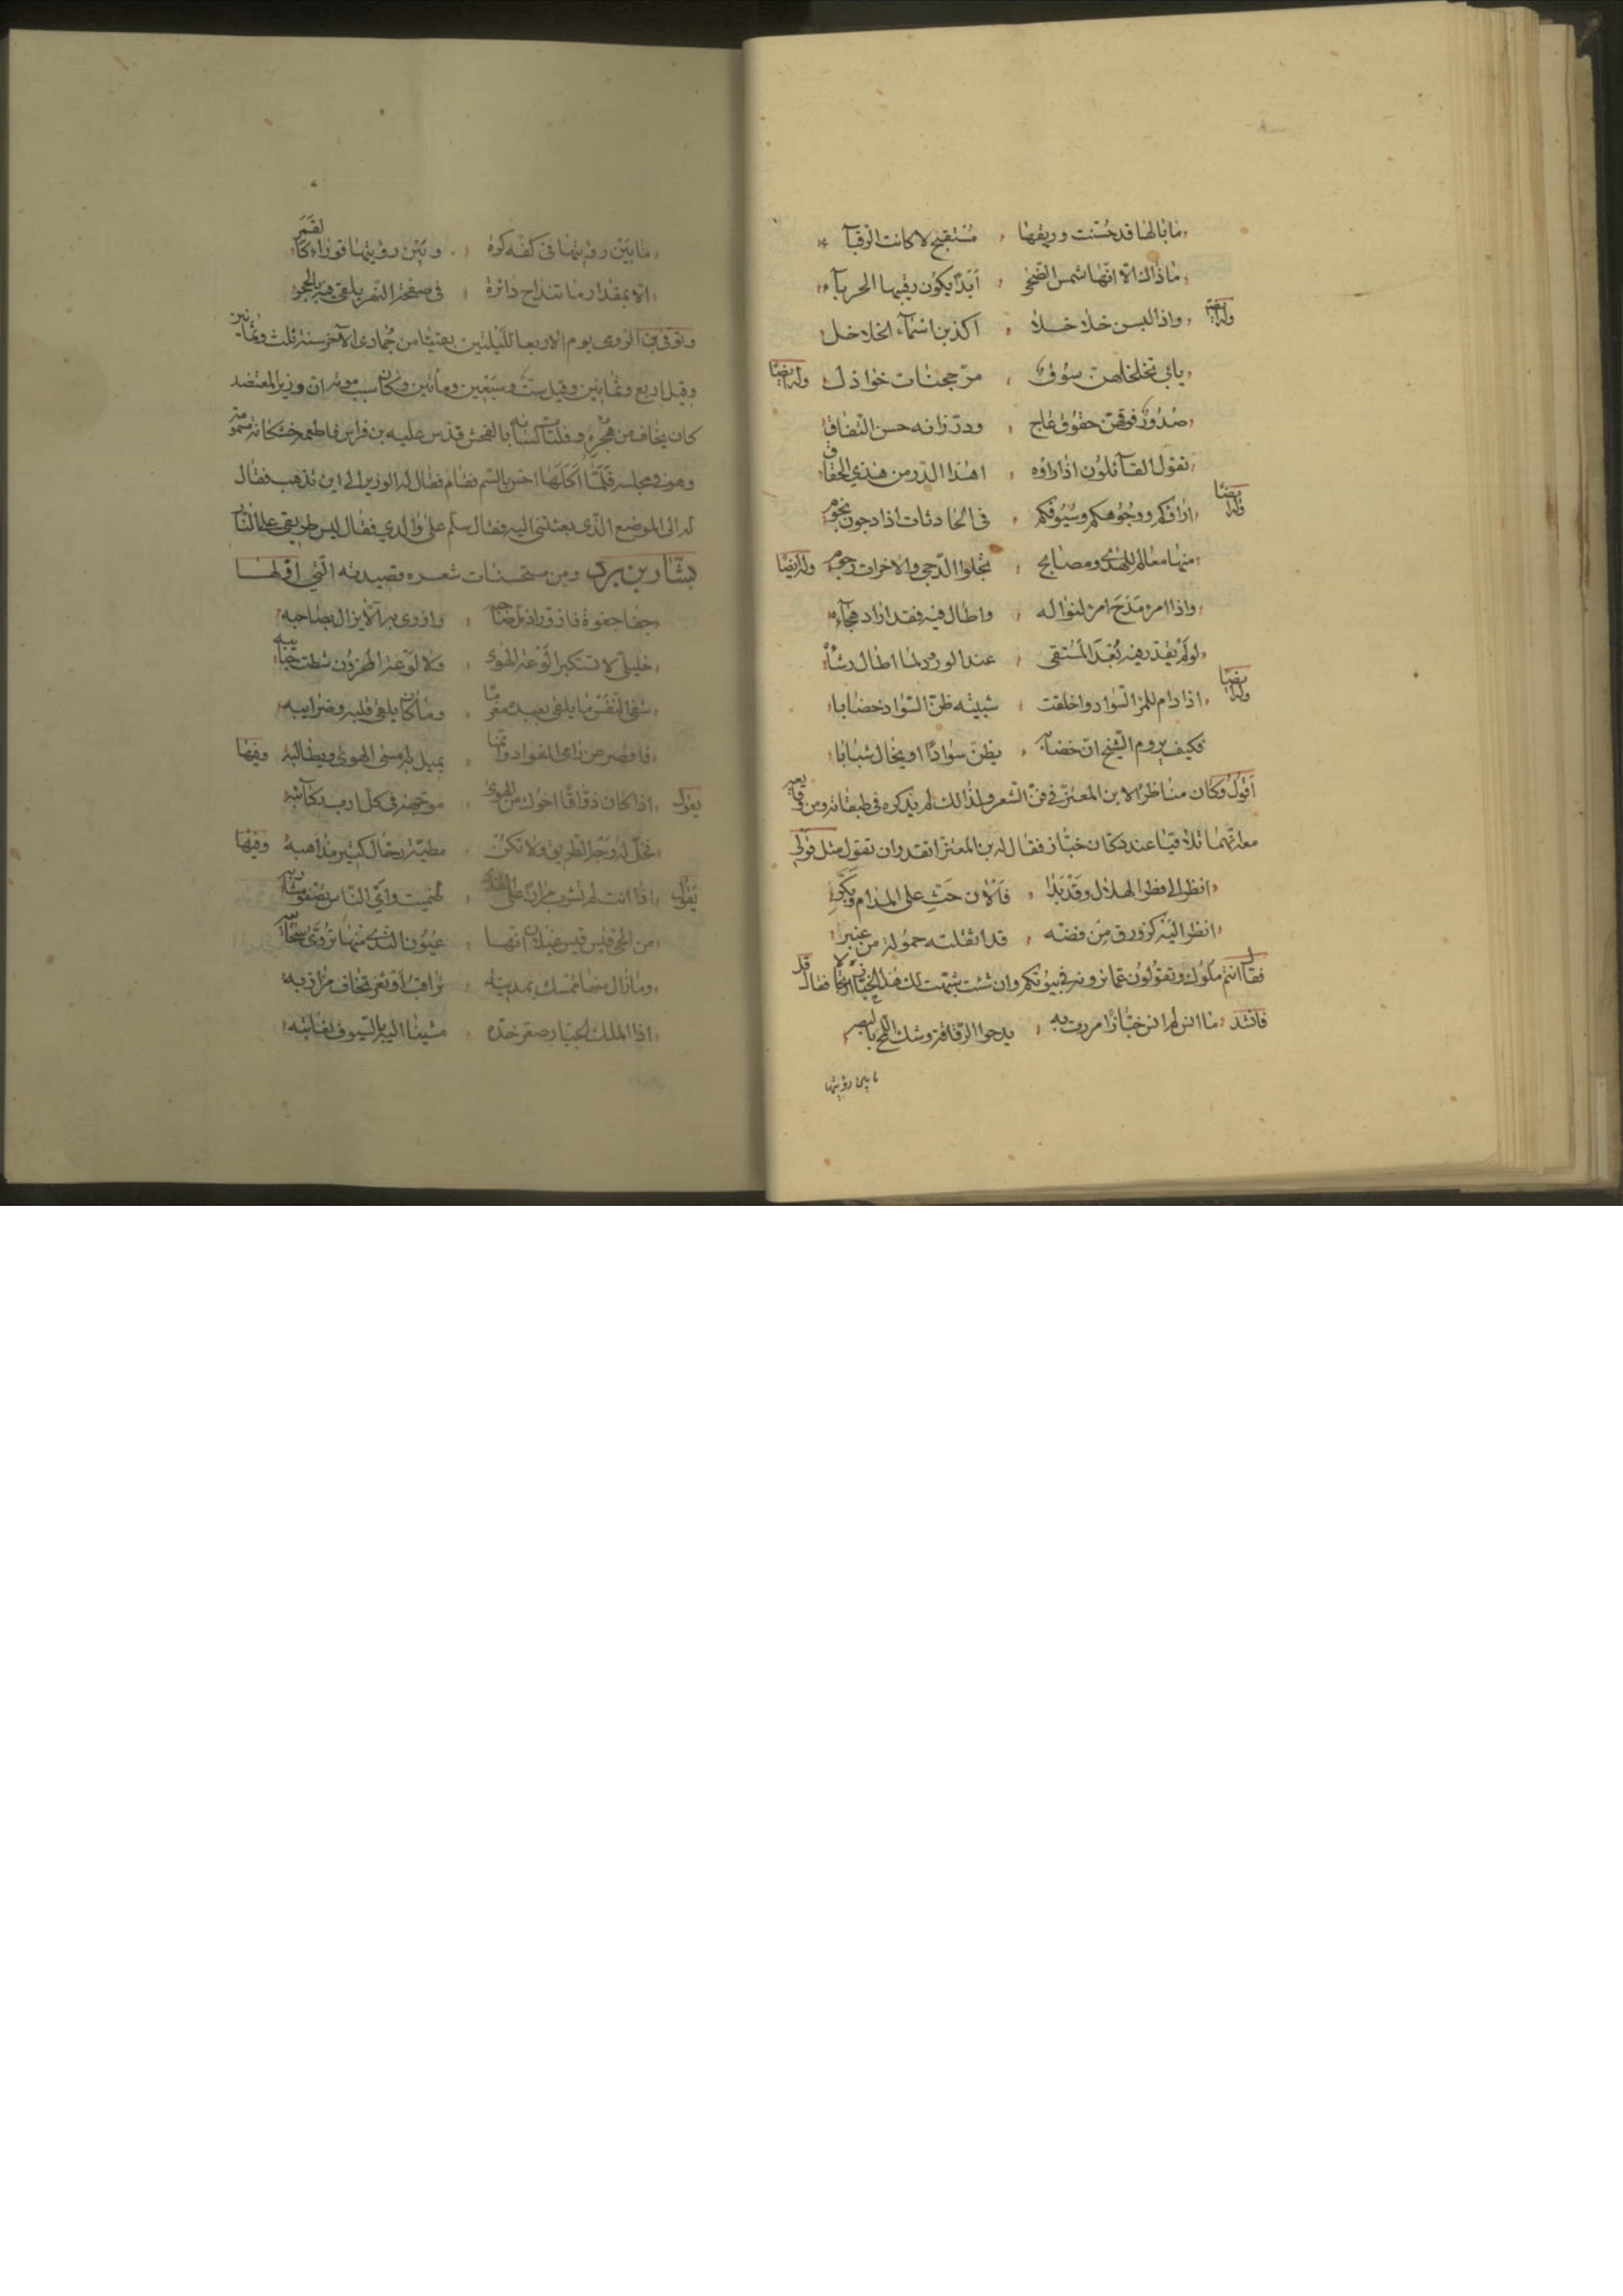 ما بالها قد حسنت ورقيبها ، مستقبح لا كانت الرقبآ
ما ذاك الا انها شمس الضحى ، ابدا يكون رقيبها الحربآء
وله ايضا واذا لبسن خلاخلا ، اكذبن اسمآء الخلاخل
يابى تخلخلهن سوق ، مرججنات خواذل وله ايضا
صدور فوقهن حقوق عاج ، ودر زانه حسن اتساق
تقول القآئلون اذا راوه ، اهذا الدر من هذي الحقاق
وله ايضا اراؤكم ووجوهكم وسيوفكم ، في الحادثات اذا دجون نجوم
منها معالم للهدى ومصابح ، تجلوا الدجى والاخرات رجوم وله ايضا
واذا امرؤ مدح امرء لنواله ، واطال فيه فقد اراد هجآءه
لو لم يقدر فيه بعد المستقى ، عند الورود لما اطال رشآه
وله ايضا اذا دام للمرء السواد واخلقت ، شبيبته ظن السواد خضابا
فكيف يروم الشيخ ان خضابه ، يظن سوادا او يخال شبابا
اقول وكان مناظرا لابن المعتز في فن الشعر ولذلك لم يذكره في طبقاته ومن وقايعه
معه انهما تلاقيا عند دكان خباز فقال له بن المعتز اتقدر ان تقول مثل قولي
انظر الى فطر الهلال وقد بدا ، فالان حث على المدام وبكر
انظر اليه كزورق من فضة ، قد اثقلته حمولة من عنبر
فقال انتم ملوك وتقولون مما ترونه في بيوتكم وان شئت شبهت لك هذا الخباز ارتجالا فقال قل
فانشد ما انس لم انس خبازا مررت به ، يدحوا الرقاقة وشك اللمح بالبصر
ما بين رؤيتها
ما بين رؤيتها في كفه كرة ، وبين رؤيتها قوراء كالقمر
الا بمقدار ما تنداح دائرة ، في صفحة النهر يلقى فيه بالحجر
وتوفي ابن الرومي يوم الاربعا لليلتين بقيتا من جمادى الآخر سنة ثلث وثمانين
وقيل اربع وثمانين وقيل ست وسبعين ومأتين وكان سبب موته ان وزير المعتضد
كان يخاف من هجره وفلتات لسانه بالفحش فدس عليه بن فراس فاطعمه خشكنانه مسمومة
وهو في مجلسه فلما اكلها احس بالسم فقام فقال له الوزير الى اين تذهب فقال
له الى الموضع الذي بعثتني اليه فقال سلم على والدي فقال ليس طريقي على النار
بشار بن برد ومن مستحسنات شعره قصيدته التي اولها
جفا جفوة فازور اذ مل صاحبه ، وازرى به الا يزال يصاحبه
خليلي لا تستكثرا لوعة الهوى ، ولا لوعة المحزون شطت حبايبه
شفى النفس ما يلقى بعبدة مغرما ، وما كان يلقى قلبه وضرايبه
فاقصر عن رامي الفواد وانما ، يميل به مس الهوى ويطالبه وفيها
يقول اذا كان ذواقا اخوك من الهوى ، موجهة في كل اوب ركآئبه
فخل له وجه الطريق ولا تكن ، مطية رحال كثير مذاهبه وفيها
يقول اذا انت لم تشرب مرارا على القذى ، ظميت واي الناس تصفو مشاربه
من الحي قيس قيس عيلان انها ، عيون الندى منها تروى سحآئبه
وما زال منها ممسك بمدينة ، تراقب او ثغر تخاف مرازبه
اذا الملك الجبار صعر خده ، مشينا اليه بالسيوف نعاتبه